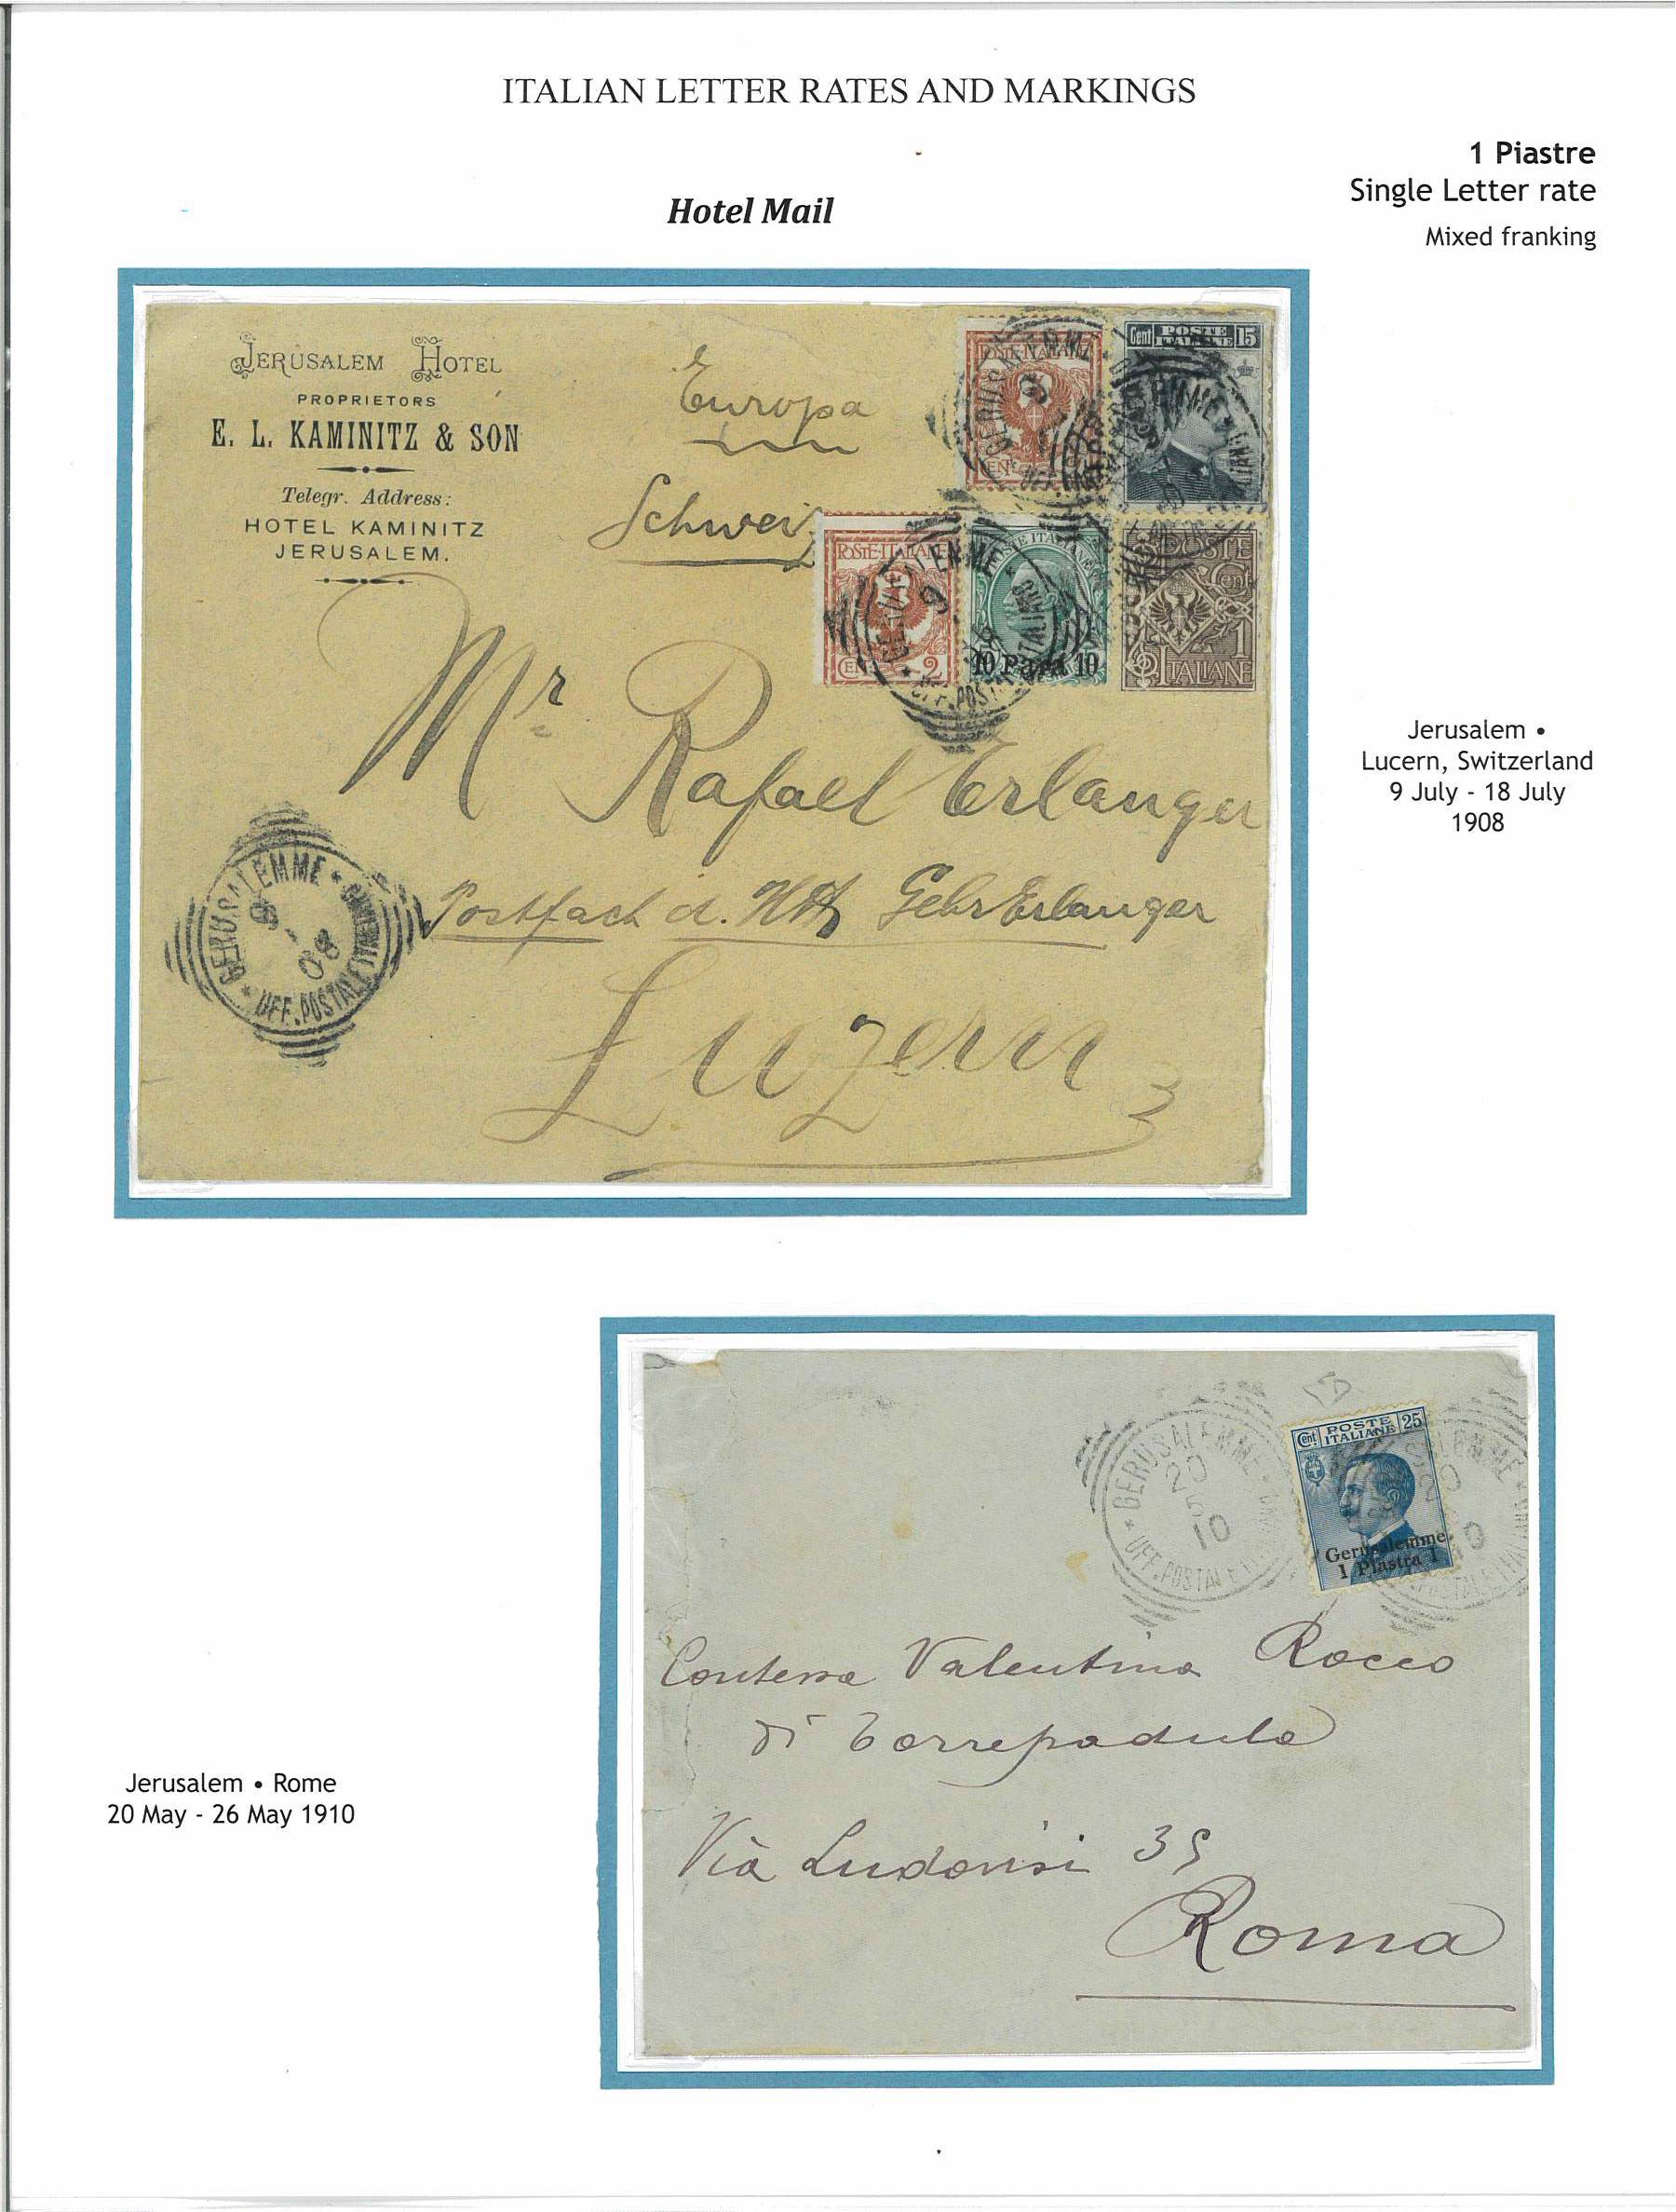 ITALIAN LETTER RATES AND MARKINGS
1 Piastre
Single Letter rate
Mixed franking
Hotel Mail
JERUSALEM HOTEL
PROPRIETORS
E. L. KAMINITZ & SON
Telegr. Address:
HOTEL KAMINITZ
JERUSALEM.
Europa
Schweiz
POSTE ITALIANE
CEN
Cent POSTE ITALIANE 15
POSTE ITALIANE
CEN 2
POSTE ITALIANE
10 Para 10
POSTE
Cent 1
ITALIANE
GERUSALEMME
9
UFF. POSTALE ITALIANO
Mr Rafael Erlanger
Postfach d. Gebr Erlanger
Luzern
GERUSALEMME
9 - 08
UFF. POSTALE ITALIANO
Jerusalem •
Lucern, Switzerland
9 July - 18 July
1908
GERUSALEMME
20
5
10
UFF. POSTALE ITALIANO
Cent POSTE ITALIANE 25
Gerusalemme
1 Piastra 1
Contessa Valentina Rocco
di Torrepadula
Via Ludovisi 35
Roma
Jerusalem • Rome
20 May - 26 May 1910